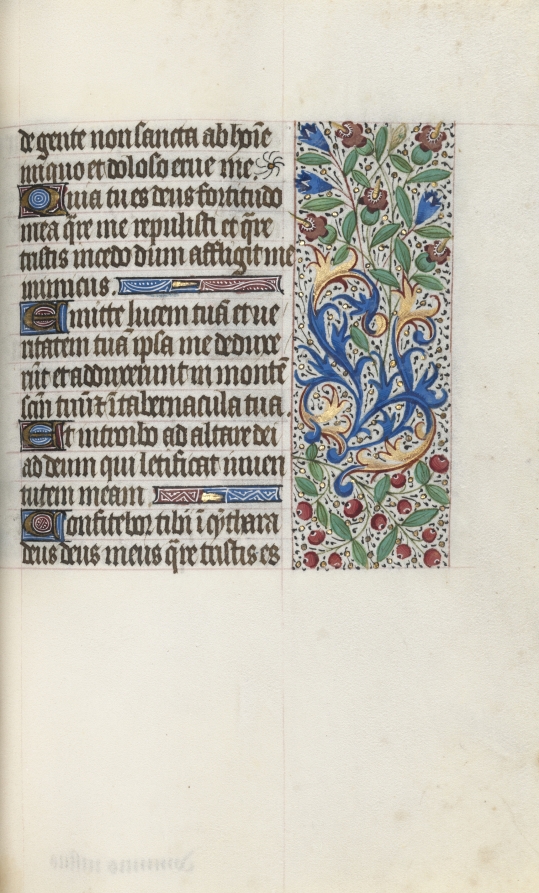 de gente non sancta ab hoīe
iniquo et doloso erue me
Quia tu es deus fortitudo
mea q̄re me repulisti et q̄re
tristis incedo dum affligit me
inimicus
Emitte lucem tuā et ue
ritatem tuā ipsa me deduxe
rūt et adduxerunt in montē
scm̄ tuū & ī tabernacula tua.
Et introibo ad altare dei
ad deum qui letificat iuuen
tutem meam
Confitebor tibi ī cythara
deus deus meus q̄re tristis es